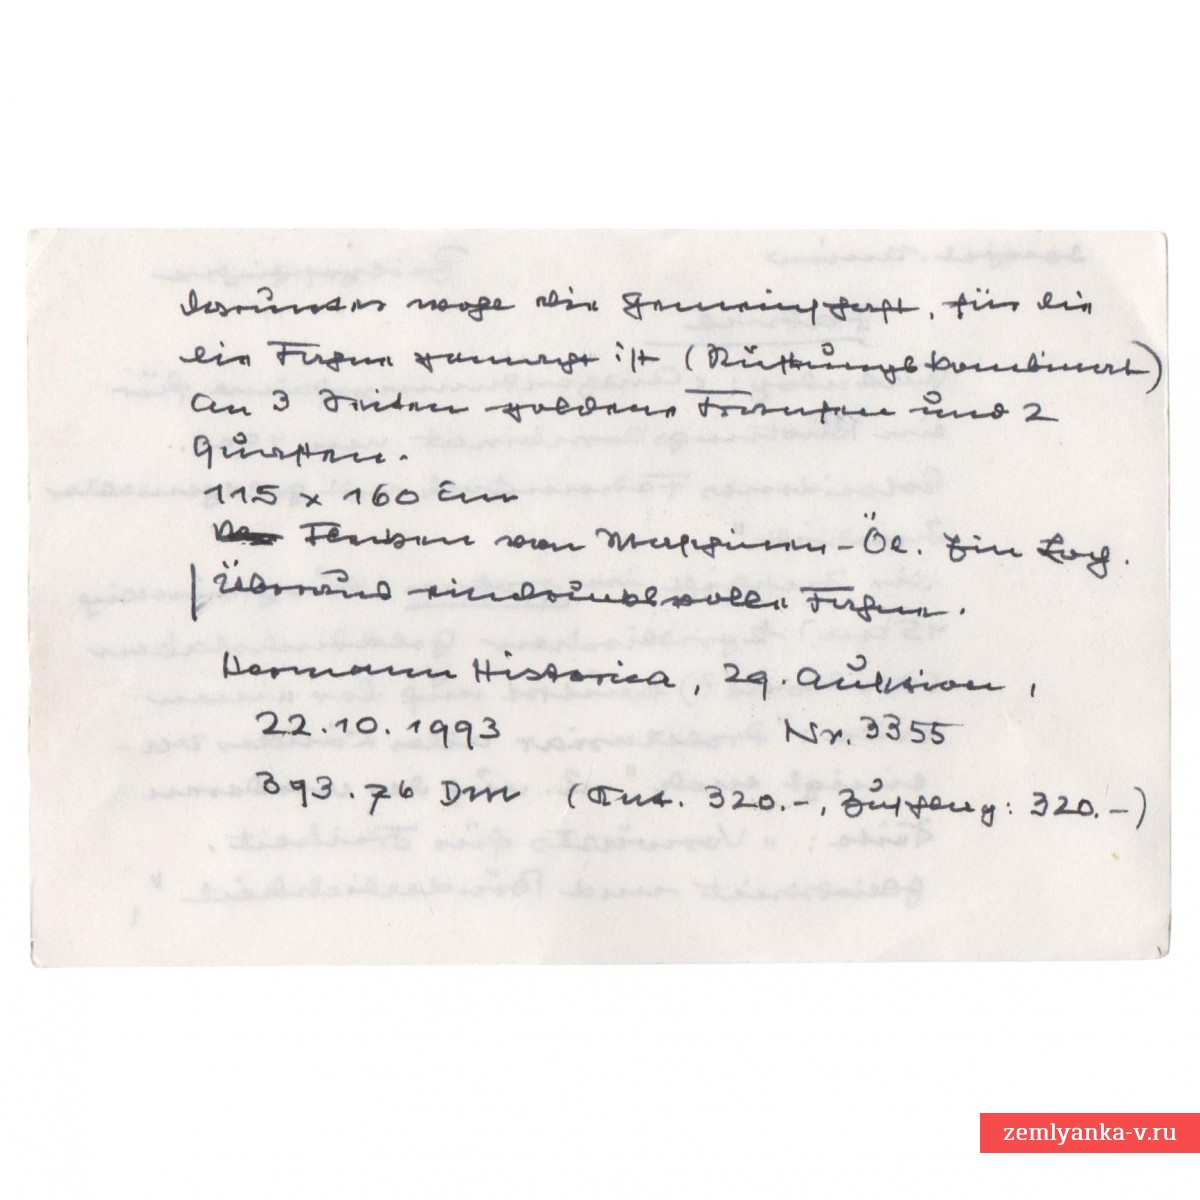 darunter wohl die Gemeinschaft, für die
die Fahne gemacht ist (Rüstungskombinat)
An 3 Seiten goldene Fransen und 2
Quasten.
115 x 160 cm
Flecken von Maschinen-Öl. Ein Loch.
Überaus eindrucksvolle Fahne.
Hermann Historica, 29. Auktion,
22.10.1993 Nr. 3355
393.76 DM (Ant. 320.-, Zuschlag: 320.-)
zemlyanka-v.ru